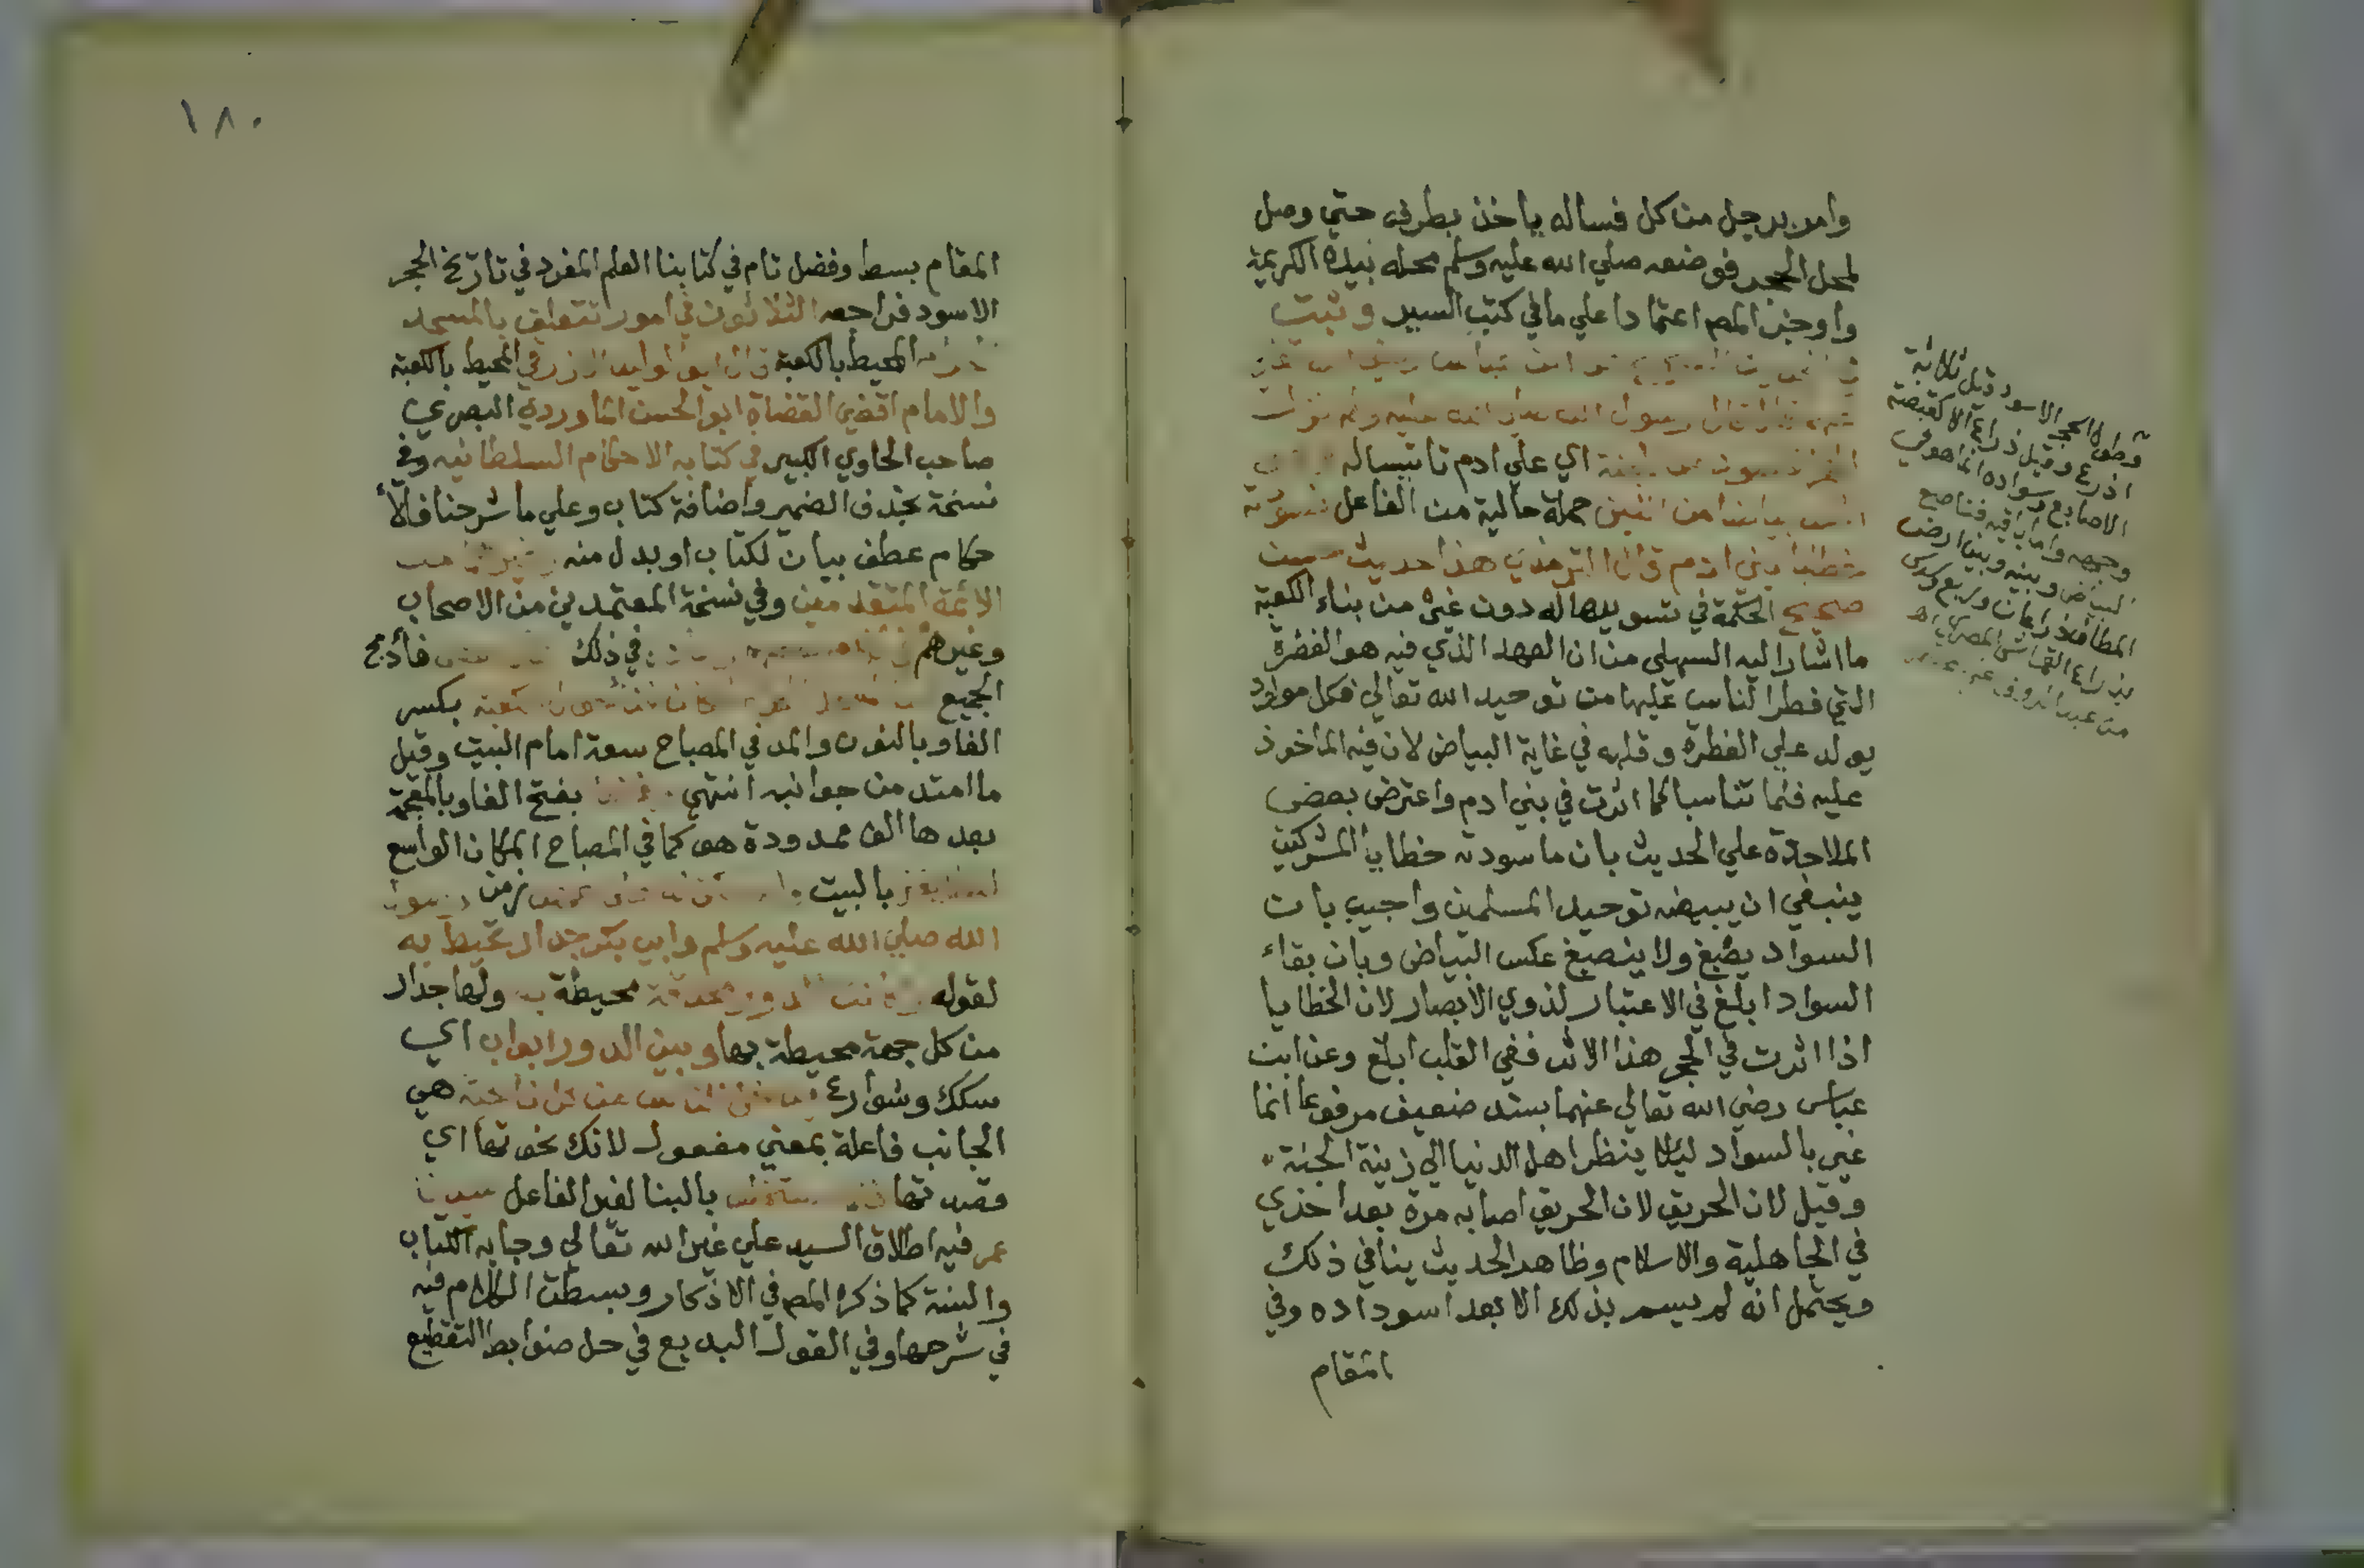 وامر برجل من كل فساله ياخذ بطرف حتي وصل
لمحل الحجر فوضعه صلي الله عليه وسلم محله بيده الكريمة
واوجز المص اعتمادا علي ما في كتب السير وثبت
رسول الله صلي الله عليه وسلم نزل
اي علي ادم تانيساله
من اللبن جملة حالية من الفاعل فسودته
خطايا بني ادم قال الترمذي هذا حديث حسن
صحيح الحكمة في تسويدها له دون غيره من بناء الكعبة
ما اشار اليه السهيلي من ان العهد الذي فيه هو الفطرة
التي فطر الناس عليها من توحيد الله تعالي فكل مولود
يولد علي الفطرة وقلبه في غاية البياض لان فيه الماخوذ
عليه فلما تناسبا كما اثرت في بني ادم واعترض بعض
الملاحدة علي الحديث بان ما سودته خطايا المشركين
ينبغي ان يبيضه توحيد المسلمين واجيب بان
السواد يصبغ ولا ينصبغ عكس البياض وبان بقاء
السواد ابلغ في الاعتبار لذوي الابصار لان الخطايا
اذا اثرت في الحجر هذا الاثر ففي القلب ابلغ وعن ابن
عباس رضي الله تعالي عنهما بسند ضعيف مرفوعا انما
غير بالسواد ليلا ينظر اهل الدنيا الي زينة الجنة
وقيل لان الحريق لان الحريق اصابه مرة بعد اخري
في الجاهلية والاسلام وظاهر الحديث ينافي ذلك
ويحتمل انه لم يسم بذلك الا بعد اسوداده وفي
المقام
وطول الحجر الاسود قيل ثلاثة
اذرع وقيل ذراع الا كقبضة
الاصابع وسواده انما هو في
وجهه واما باقيه فناصع
البياض وبينه وبين ارض
المطاف ذراعان وربع
بذراع القماش المصري اه
من عبد الروف
١٨٠
المقام بسط وفضل تام في كتابنا العلم المفرد في تاريخ الحجر
الاسود فراجعه الثلاثون في امور تتعلق بالمسجد
المحيط بالكعبة قال ابو الوليد الازرقي المحيط بالكعبة
والامام اقضي القضاة ابو الحسن الماوردي البصري
صاحب الحاوي الكبير في كتابه الاحكام السلطانيه وفي
نسخة بحذف الضمير واضافة كتاب وعلي ما شرحنا فالا
حكام عطف بيان لكتاب او بدل منه وغيرهما من
الائمة المتقدمين وفي نسخة المعتمدين من الاصحاب
وغيرهم في ذلك فأدمج
الجميع بكسر
الفاو بالنون والمد في المصباح سعة امام البيت وقيل
ما امتد من جوانبه انتهي بفتح الفاو بالمعجمة
بعدها الف ممدودة هو كما في المصباح المكان الواسع
بالبيت زمن رسول
الله صلي الله عليه وسلم وابي بكر جدار تحيط به
لقوله وكانت الدور محدقة محيطة به ولها جدار
من كل جهة محيطة بها وبين الدور ابواب اي
سكك وشوارع يدخل الناس من كل ناحية هي
الجانب فاعلة بمعني مفعول لانك نحوتها اي
قصدتها استخلف بالبنا لغير الفاعل سيدنا
عمر فيه اطلاق السيد علي غير الله تعالي وجا به الكتاب
والسنة كما ذكره المص في الاذكار وبسطت الكلام فيه
في شرحها وفي القول البديع في حل ضوابط التقطيع